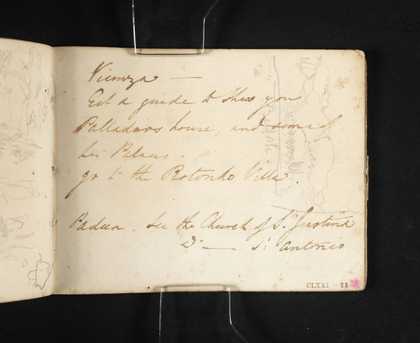 Vicenza —
Get a guide to shew you
Palladios house, and some of
his Palaces.
go to the Rotondo Villa.
Padua. See the Church of St. Justina
Do — St. Antonio
CLXXI - 11